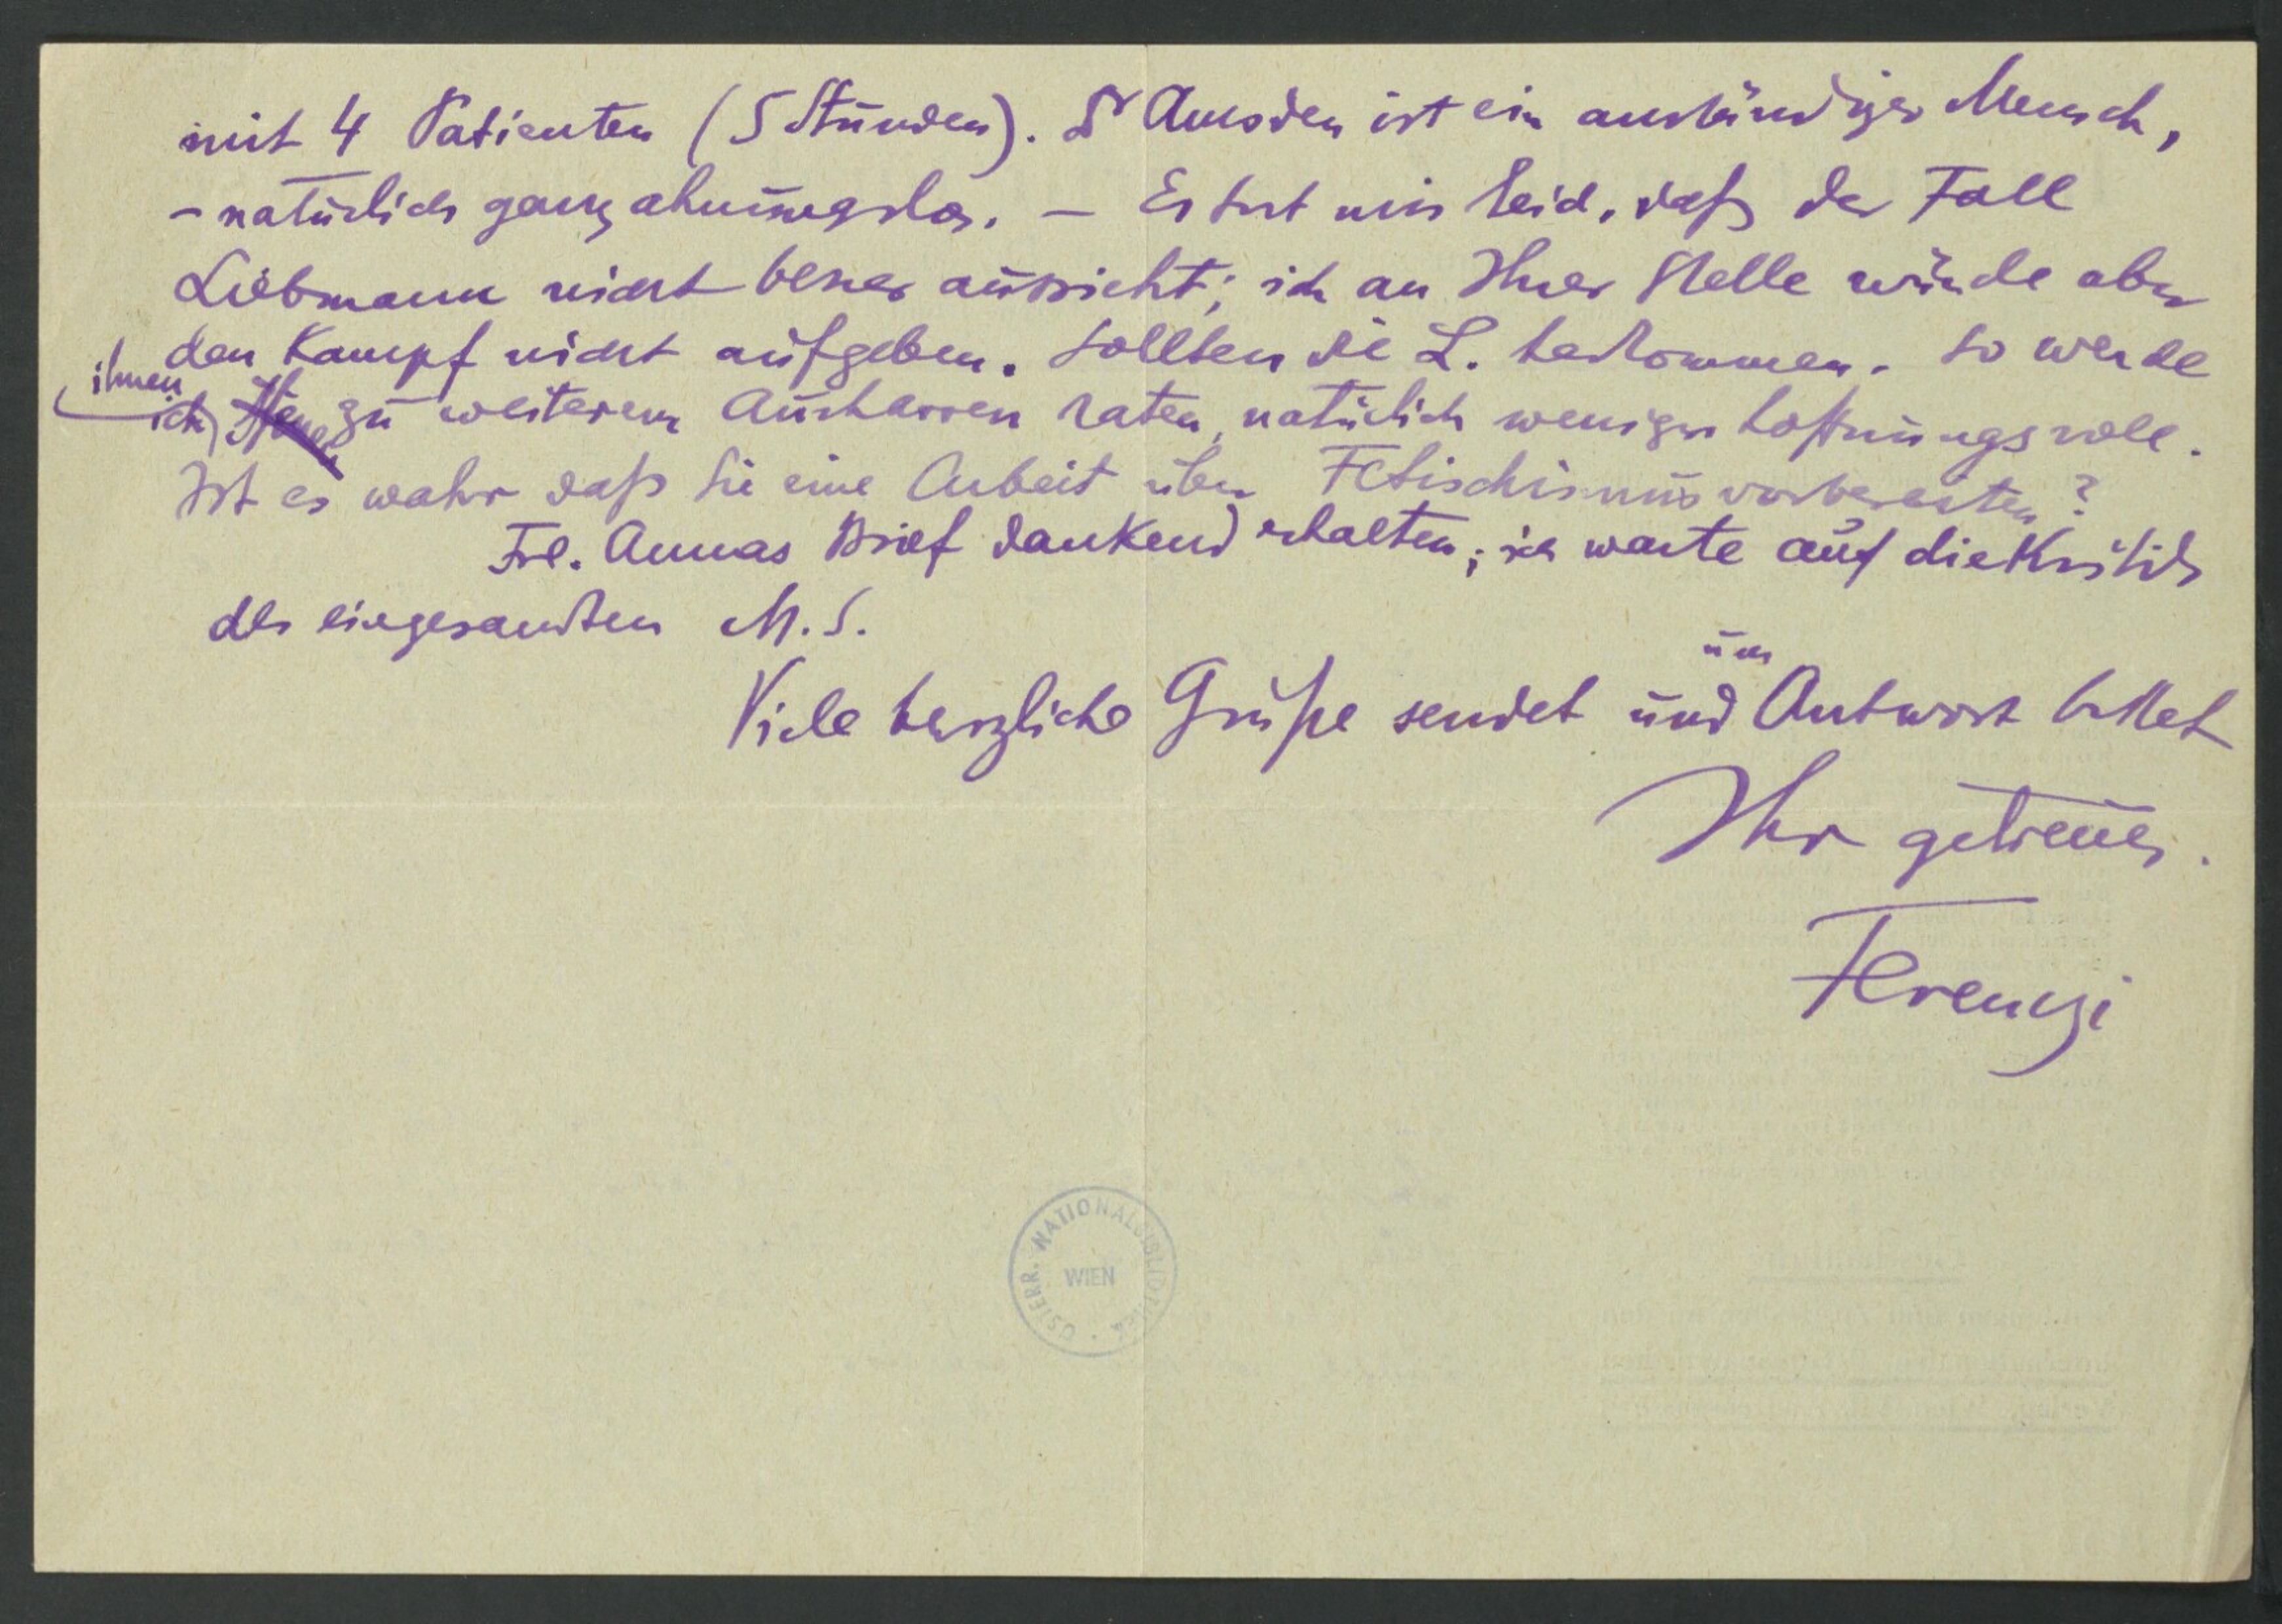 mit 4 Patienten (5 Stunden). Dr Amsden ist ein anständiger Mensch,
– natürlich ganz ahnungslos. – Es tut mir leid, daß der Fall
Liebmann nicht besser aussieht; ich an Ihrer Stelle würde aber
den Kampf nicht aufgeben. Sollten die L. herkommen, so werde
ihnen
ich zu weiterem Ausharren raten, natürlich weniger hoffnungsvoll.
Ist es wahr daß Sie eine Arbeit über Fetischismus vorbereiten?
Frl. Annas Brief dankend erhalten; ich warte auf die Kritik
des eingesandten M.S.
um
Viele herzliche Grüße sendet und Antwort bittet
Ihr getreuer
Ferenczi
ÖSTERR. NATIONALBIBLIOTHEK
WIEN